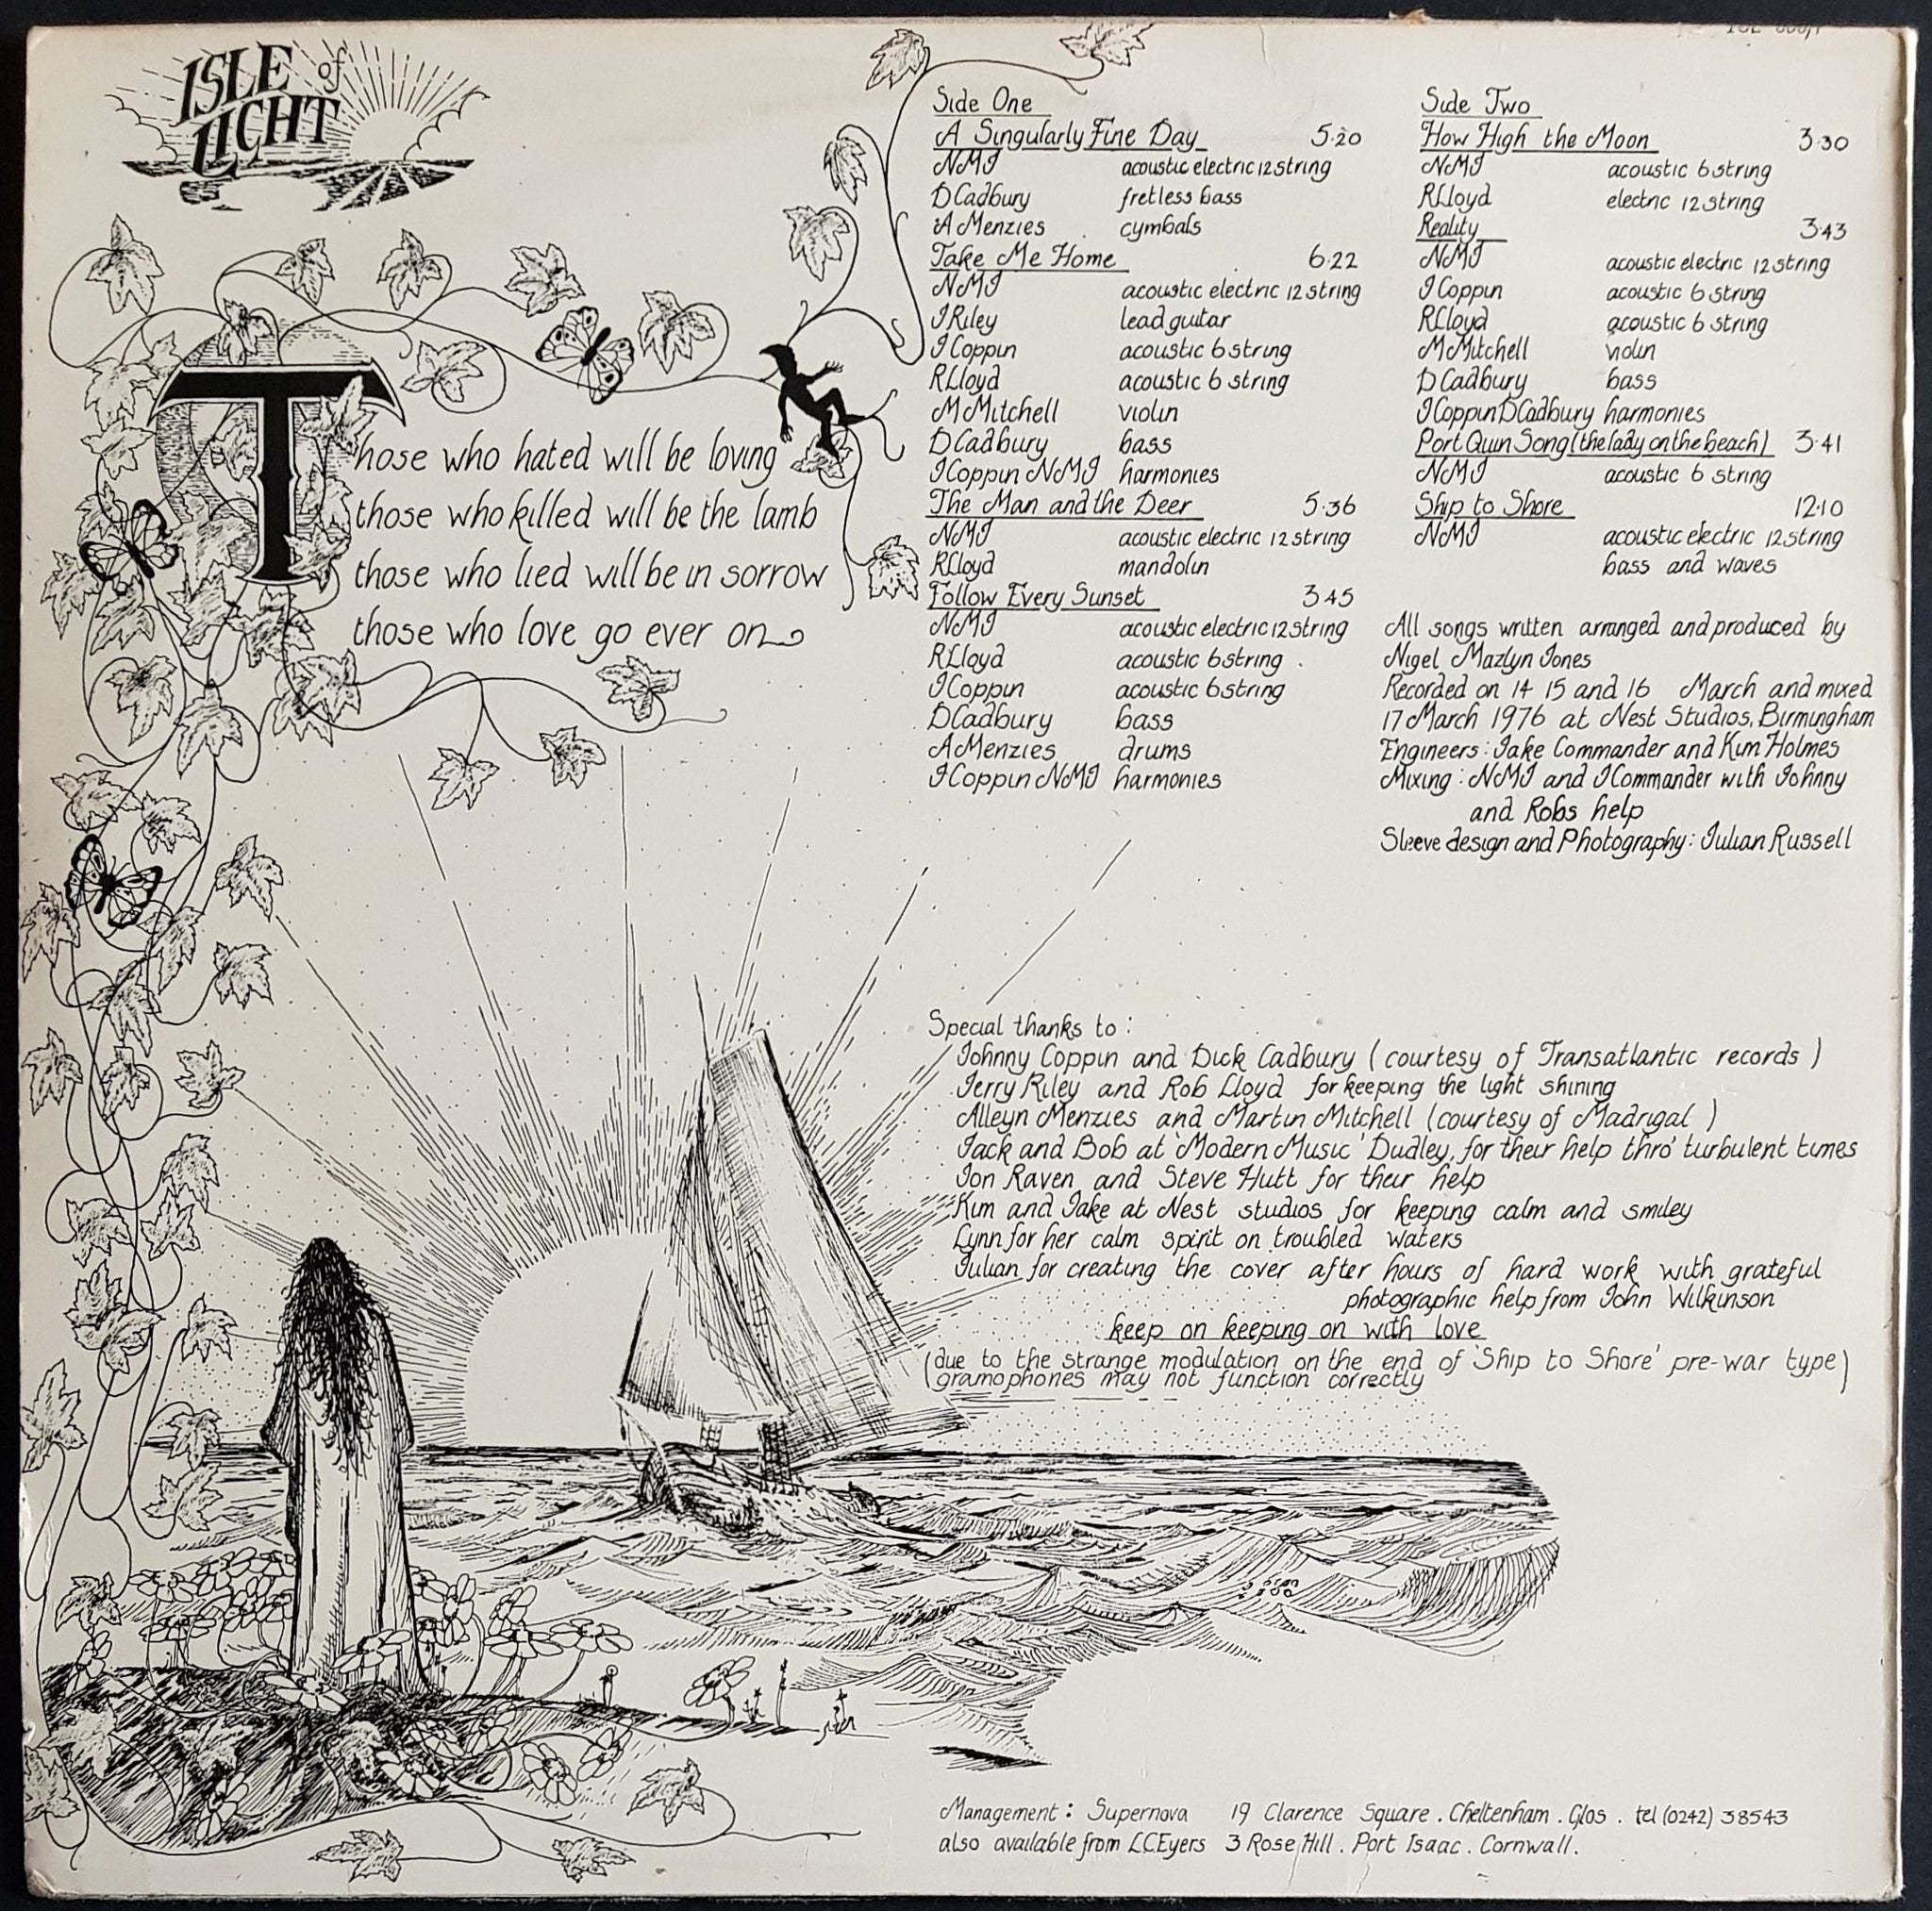 ISLE of
LIGHT
Those who hated will be loving
those who killed will be the lamb
those who lied will be in sorrow
those who love go ever on
Side One
A Singularly Fine Day 5·20
NMJ acoustic electric 12 string
D Cadbury fretless bass
A Menzies cymbals
Take Me Home 6·22
NMJ acoustic electric 12 string
J Riley lead guitar
J Coppin acoustic 6 string
R Lloyd acoustic 6 string
M Mitchell violin
D Cadbury bass
J Coppin NMJ harmonies
The Man and the Deer 5·36
NMJ acoustic electric 12 string
R Lloyd mandolin
Follow Every Sunset 3·45
NMJ acoustic electric 12 string
R Lloyd acoustic 6 string
J Coppin acoustic 6 string
D Cadbury bass
A Menzies drums
J Coppin NMJ harmonies
Side Two
How High the Moon 3·30
NMJ acoustic 6 string
R Lloyd electric 12 string
Reality 3·43
NMJ acoustic electric 12 string
J Coppin acoustic 6 string
R Lloyd acoustic 6 string
M Mitchell violin
D Cadbury bass
J Coppin D Cadbury harmonies
Port Quin Song (the lady on the beach) 3·41
NMJ acoustic 6 string
Ship to Shore 12·10
NMJ acoustic electric 12 string
bass and waves
All songs written arranged and produced by
Nigel Mazlyn Jones
Recorded on 14 15 and 16 March and mixed
17 March 1976 at Nest Studios, Birmingham
Engineers: Jake Commander and Kim Holmes
Mixing: NMJ and J Commander with Johnny
and Robs help
Sleeve design and Photography: Julian Russell
Special thanks to:
Johnny Coppin and Dick Cadbury (courtesy of Transatlantic records)
Jerry Riley and Rob Lloyd for keeping the light shining
Alleyn Menzies and Martin Mitchell (courtesy of Madrigal)
Jack and Bob at 'Modern Music' Dudley, for their help thro' turbulent times
Jon Raven and Steve Hutt for their help
Kim and Jake at Nest studios for keeping calm and smiley
Lynn for her calm spirit on troubled waters
Julian for creating the cover after hours of hard work with grateful
photographic help from John Wilkinson
keep on keeping on with love
(due to the strange modulation on the end of 'Ship to Shore' pre-war type)
gramophones may not function correctly
Management: Supernova 19 Clarence Square. Cheltenham. Glos. tel (0242) 38543
also available from L.C.Eyers 3 Rose Hill. Port Isaac. Cornwall.